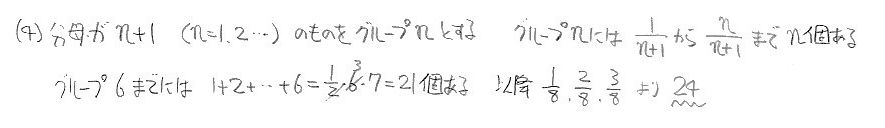 (4) 分母が n+1 (n=1, 2 …) のものをグループ n とする グループ n には 1/(n+1) から n/(n+1) まで n個ある
グループ 6 までには 1+2+…+6=1/2・6・7=21個ある 以降 1/8, 2/8, 3/8 より 24